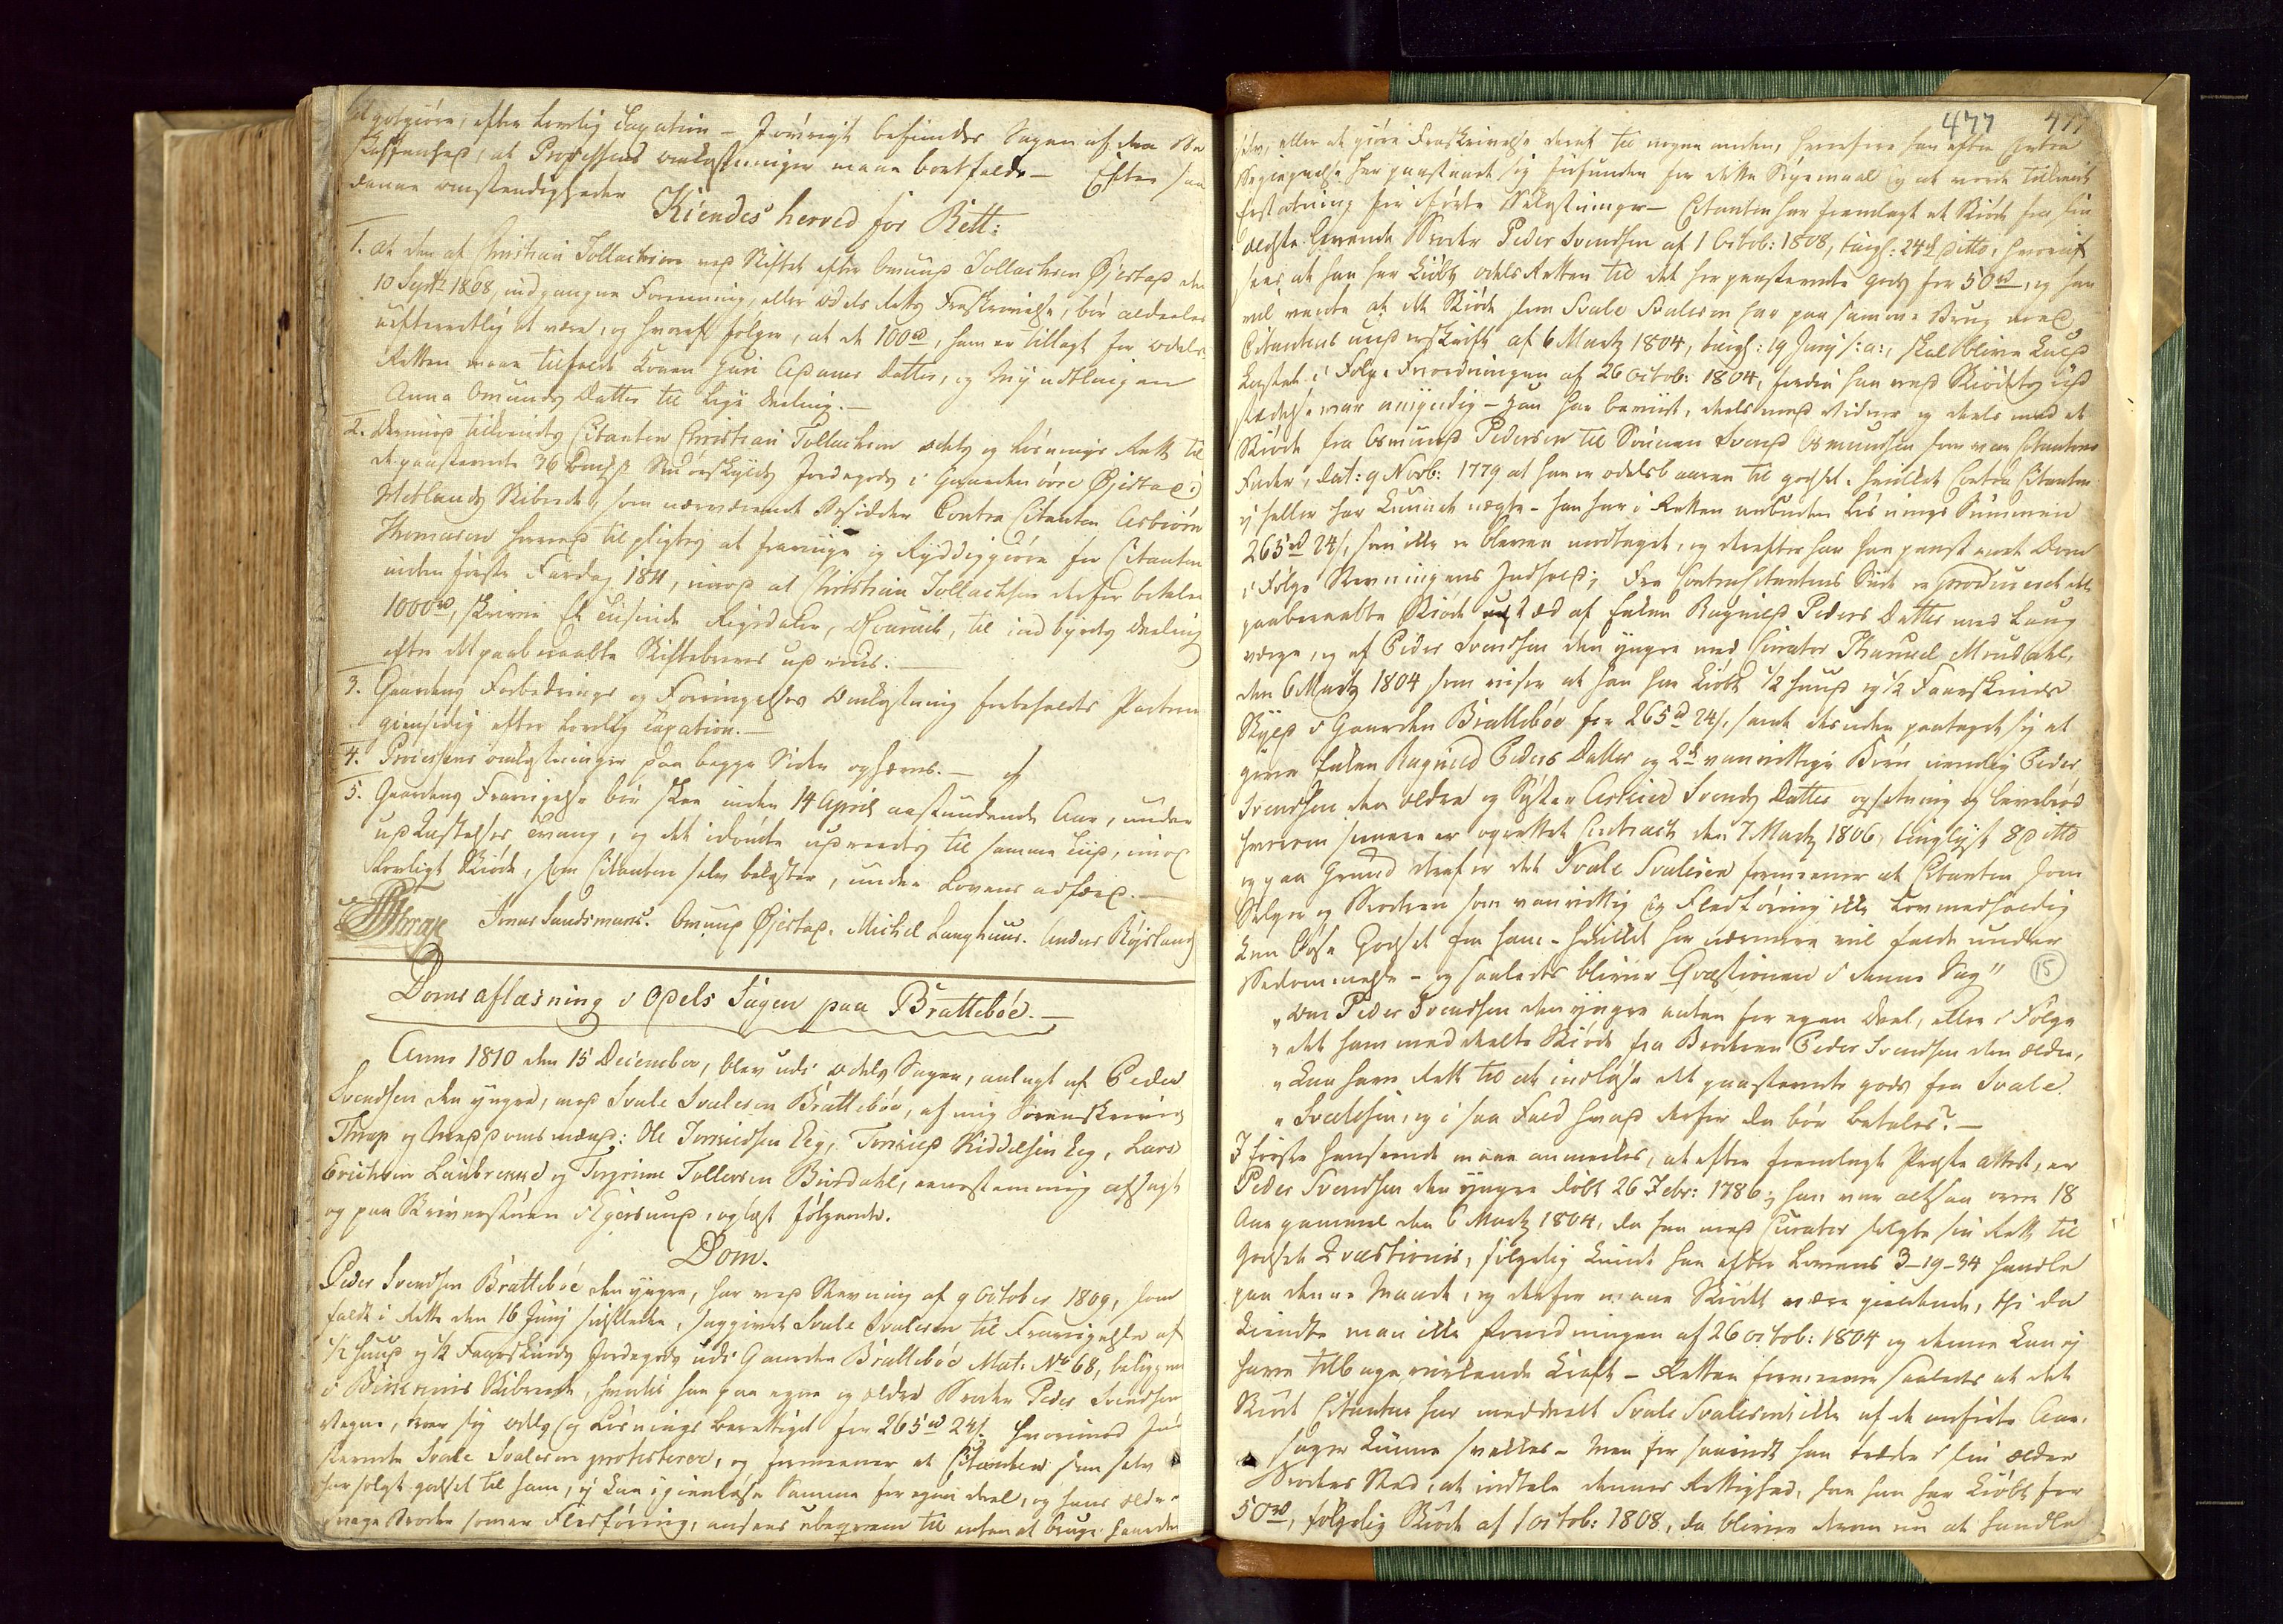 efter Lovlig Taxation – Jøvrigt befindes Sagen af den Be
skaffenhed, at Processens omkostninger maae bortfalde – Efter saa
danne omstændigheder
Kiendes herved for Rett:
1. At den at Christian Tollachsen ved Skiftet efter Omund Tollachsen Øgestad den
10 Septr 1808, indgangne Foreening, eller odels Retts Fraskrivelse, bør aldeeles
uefterrettlig at være, og hvoraf følger, at de 100rd, ham er tillagt for odels
Retten maae tilfalde Konen Guri Adams Datter, og Myndtlingen
Anna Omunds Datter til lige Deeling. –
2. Dernest tilkiendes Citanten Christian Tollachsen odels og Løsnings Rett til
de paastevnte 36 Smørskylds Jordegods i Gaarden Øgestad i
Hetlands Skibrede, som nærværende Besidder Contra Citanten Asbiørn
Thomasen herved tilpligtes at fravige og Ryddiggiøre for Citanten
inden første Fardag 1811, imod at Christian Tollachsen derfor betaler
1000rd, skriver Et Tusinde Rigsdaler, til indbyrdes Deeling
efter det paaberaabte Skiftebrevs udviis. –
3. Gaardens Forbedrings og Forringelses Omkostning forbeholdes Parterne
giensidig efter Lovlig Taxation. –
4. Processens omkostninger paa begge Sider ophæves. – og
5. Gaardens Fravigelse bør skee inden 14 April anstundende Aar, under
udkastelses Tvang, og det idømte udreedes til samme Tiid, imod
Lovligt Skiøde, som Citanten selv bekoster, under Lovens adfærd. –
Jonas Sandsmark. Omund Øgestad. Michel Langhuus. Anders Røysland
Doms aflæsning i Odels Sagen paa Brattebøe. –
Anno 1810 den 15 December, blev udi Odels Sagen, anlagt af Peder
Svendsen den yngre, mod Svale Svalesen Brattebøe, af mig Sorenskriver
Thrap og Meddomsmænd: Ole Tønnesen Eeg, Tønnes Riddelsen Eeg, Lars
Erichsen Laubrekke og Torgrim Tollevsen Birdahl, eenstemmig afsagt
og paa Skriverstuen i Egersund, oplæst følgende.
Dom.
Peder Svendsen Brattebøe den yngre, har ved Stevning af 9 October 1809, som
faldt i Rette den 16 Junj sidstleden, saggivet Svale Svalesen til Fravigelse af
1/2 Huud og 1/2 Faarskinds Jordegods udi Gaarden Brattebøe Mat: No 68, beliggende
i Skibrede, hvortil han paa egne og ældre Broder Peder Svendsens
Vegne, troer sig odels og Løsnings berettiget for 265rd 24s. Hvorimod Ind
stevnte Svale Svalesen protesterer, og formeener at Citanten som selv
har solgt godset til ham, ej kan igienløse Samme for egen Deel, og hans ældre
svage Broder som er Fledføring, ansees ubeqvem til enten at bruge Gaarden
477
selv, eller at giøre Fraskrivelse deraf til nogen anden, hvorfore han efter Contra
har paastaaet sig frifunden for dette Søgemaal og at vorde tillagt
Erstatning for førte Bekostninger – Citanten har fremlagt et Skiøde fra sin
ældste Broder Peder Svendsen af 1 Octob: 1808, tingl: 24de ditto, hvoraf
sees at han har kiøbt odels Retten til det her paastevnte Gods for 50rd, og han
vil paastaae at det Skiøde som Svale Svalesen har paa samme Brug med
Citantens underskrift af 6 Martz 1804, tingl: 19 Junj s: a:, skal blive kuld
kastet i Følge Forordningen af 26 Octob: 1804, fordi han ved Skiødets ud
stædelse var umyndig – Han har beviist, deels med Vidner og deels med et
Skiøde fra Osmund Pedersen til Sønnen Svend Osmundsen som var Citantens
Fader, dat: 9 Novb: 1779 at han er odelsbaaren til godset. hvilket Contra Citanten
ej heller har kundet nægte – Han har i Retten anbuden Løsnings Summen
265rd 24s, som ikke er bleven modtaget, og derefter har han paastaaet Dom
i Følge Stevningens Indhold; Fra Contracitantens Side er produceret det
paaberaabte Skiøde udstæd af Enken Ragnild Peders Datter med Laug
værge, og af Peder Svendsen den yngre med Curator Thanuel Mrudahl,
den 6 Martz 1804 som viser at han har kiøbt 1/2 Huud og 1/2 Faarskinds
Skyld i Gaarden Brattebøe for 265rd 24s, samt desuden paataget sig at
give Enken Ragnild Peders Datter og 2de vanvittige Børn nemlig Peder
Svendsen den ældre og Søster Astrid Svends Datter opfostring og Levebrød
hvorom senere er oprettet Contract den 7 Martz 1806, tinglyst 8 ditto
og paa Grund deraf er det Svale Svalesen formeener at Citanten som
Sælger og Broderen som vanvittig og Fledføring ikke Lovmedholdig
kan løse Godset fra ham – hvilket her nærmere vil falde under
Bedømmelse – og saaledes bliver Qvæstionen i denne Sag"
15
"Om Peder Svendsen den yngre enten for egen Deel, eller i Følge
"det ham meddeelte Skiøde fra Broderen Peder Svendsen den ældre,
"kan have Rett til at indløse det paastevnte gods fra Svale
"Svalesen, og i saa Fald hvad derfor da bør betales? –
I første Henseende maae anmerkes, at efter fremlagt Præste attest, er
Peder Svendsen den yngre døbt 26 Febr: 1786; han var altsaa over 18
Aar gammel den 6 Martz 1804, da han med Curator solgte sin Rett til
Godset Qvæstionis, følgelig kunde han efter Lovens 3–19–34 handle
paa denne Maade, og derfor maae Skiødet være gieldende, thi da
kiendte man ikke Forordningen af 26 Octob: 1804 og denne kan ej
have tilbage virkende Kraft – Retten formeener saaledes at det
Skiøde Citanten har meddeelt Svale Svalesen ikke af de anførte Aar-
sager kunne svækkes – Men for saavidt han træder i sin ældre
Broders Sted, at indtale dennes Rettighed, som han har kiøbt for
50rd, følgelig Skiøde af 1 Octob: 1808, da bliver derom nu at handle